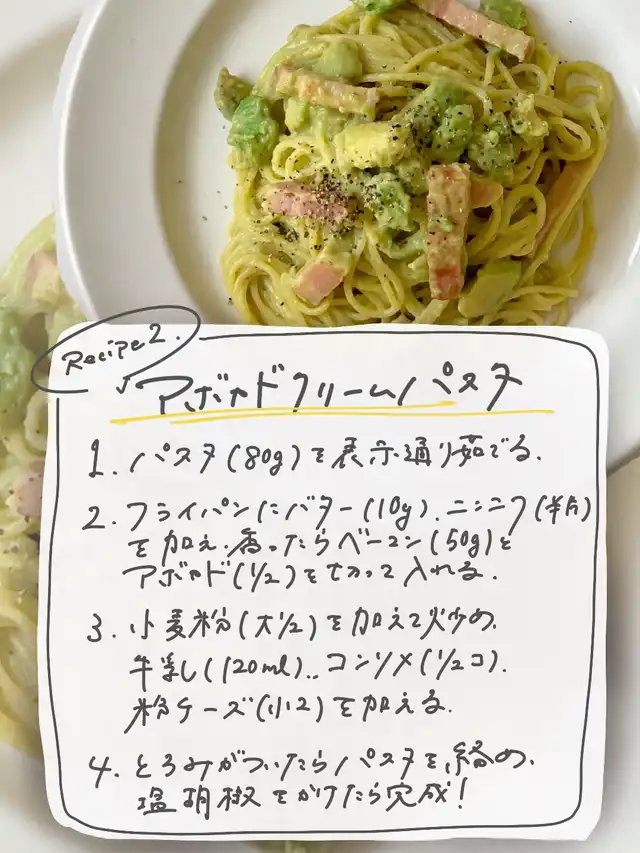 Recipe2.
アボカドクリームパスタ
1. パスタ(80g)を表示通り茹でる.
2. フライパンにバター(10g).ニンニク(半片)
を加え.香ったらベーコン(50g)と
アボカド(1/2)を切って入れる.
3. 小麦粉(大1/2)を加えて炒め.
牛乳(120ml)..コンソメ(1/2コ).
粉チーズ(小2)を加える.
4. とろみがついたらパスタを絡め.
塩胡椒をかけたら完成!